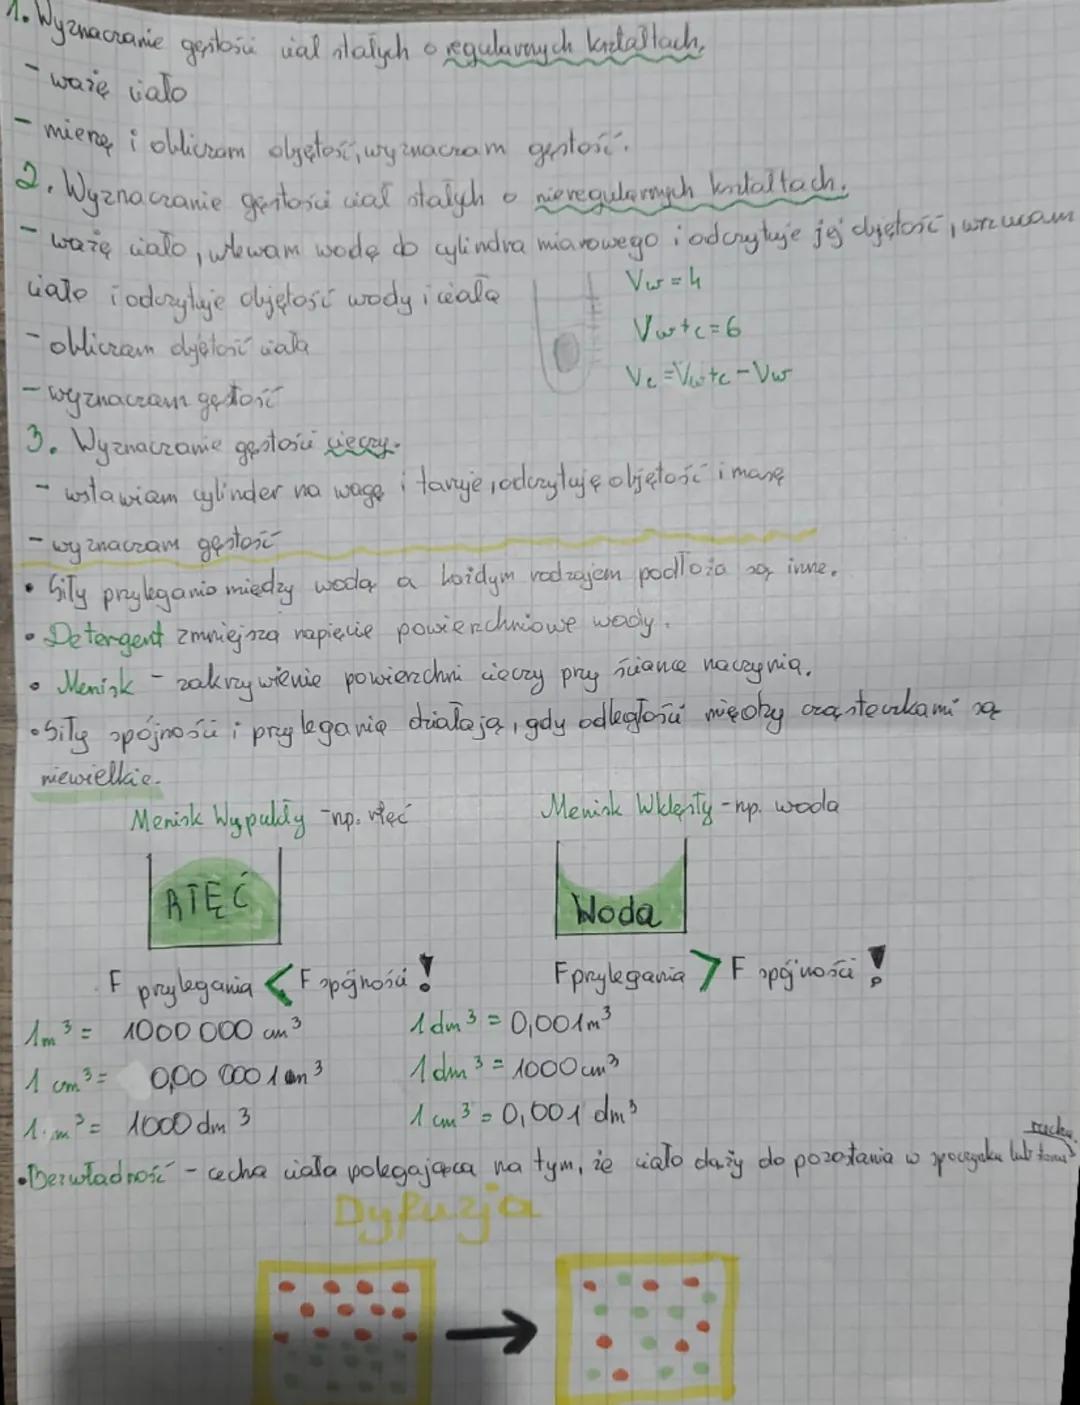 1. Wyznaczanie gęstości ciał stałych o regularnych kształtach.
- ważę ciało
- mierzę i obliczam objętość, wyznaczam gęstość.
2. Wyznaczanie gęstości ciał stałych o nieregularnych kształtach.
- ważę ciało, wlewam wodę do cylindra miarowego i odczytuje jej objętość, wrzucam
ciało i odczytuje objętość wody i ciała
Vw = 4
Vw+c = 6
- obliczam objętość ciała
Vc = Vw+c - Vw
- wyznaczam gęstość
3. Wyznaczanie gęstości cieczy.
- wstawiam cylinder na wagę i taruje, odczytuję objętość i masę
- wyznaczam gęstość
• Siły przylegania między wodą a każdym rodzajem podłoża są inne.
• Detergent zmniejsza napięcie powierzchniowe wody.
• Menisk - zakrzywienie powierzchni cieczy przy ściance naczynia.
• Siły spójności i przylegania działają, gdy odległości między cząsteczkami są
niewielkie.
Menisk Wypukły - np. rtęć
Menisk Wklęsły - np. woda
RTĘĆ
Woda
F przylegania < F spójności !
F przylegania > F spójności !
1m³ = 1000 000 cm³
1 dm³ = 0,001m³
1 cm³ = 0,00 000 1 m³
1 dm³ = 1000 cm³
1 m³ = 1000 dm³
1 cm³ = 0,001 dm³
• Bezwładność - cecha ciała polegająca na tym, że ciało dąży do pozostania w spoczynku lub ruchu
Dyfuzja